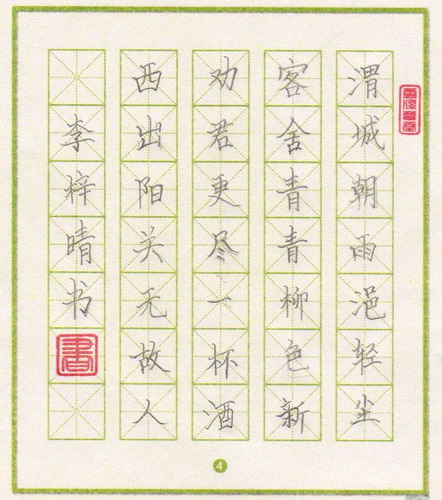 渭城朝雨浥轻尘
客舍青青柳色新
劝君更尽一杯酒
西出阳关无故人
李梓晴书
書
4